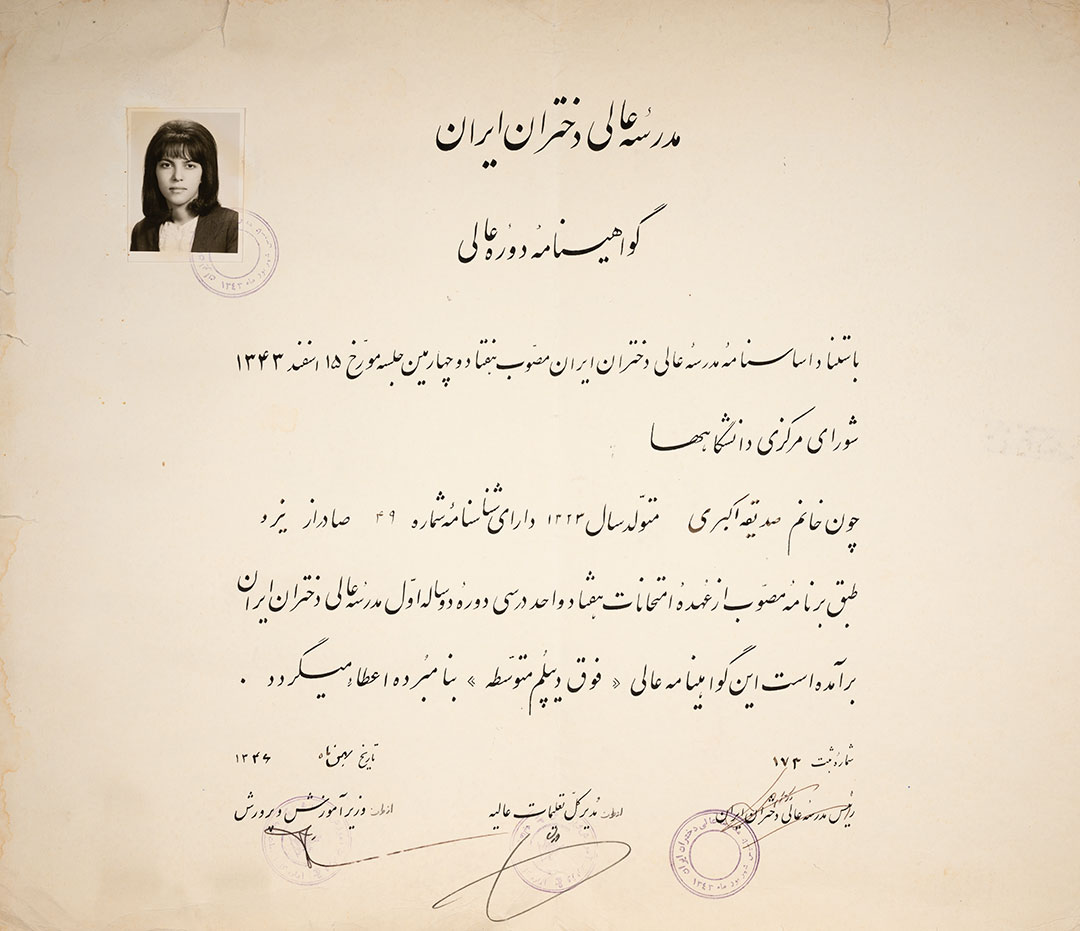 مدرسهٔ عالی دختران ایران
گواهینامهٔ دورهٔ عالی
باستناد اساسنامهٔ مدرسهٔ عالی دختران ایران مصوّب هفتاد و چهارمین جلسه مورّخ ۱۵ اسفند ۱۳۴۳
شورای مرکزی دانشگاهها
چون خانم صدیقه اکبری متولّد سال ۱۳۲۳ دارای شناسنامهٔ شماره ۴۹ صادر از یزد و
طبق برنامهٔ مصوّب از عهدهٔ امتحانات هفتاد واحد درسی دورهٔ دو ساله اوّل مدرسهٔ عالی دختران ایران
برآمده است این گواهینامه عالی « فوق دیپلم متوسّطه » بنامبرده اعطاء میگردد .
شمارهٔ ثبت ۱۷۳
تاریخ بهمن ماه ۱۳۴۶
رئیس مدرسهٔ عالی دختران ایران
از طرف مدیر کلّ تعلیمات عالیه
از طرف وزیر آموزش و پرورش
مدرسه عالی دختران ایران
شهریور ماه ۱۳۴۳